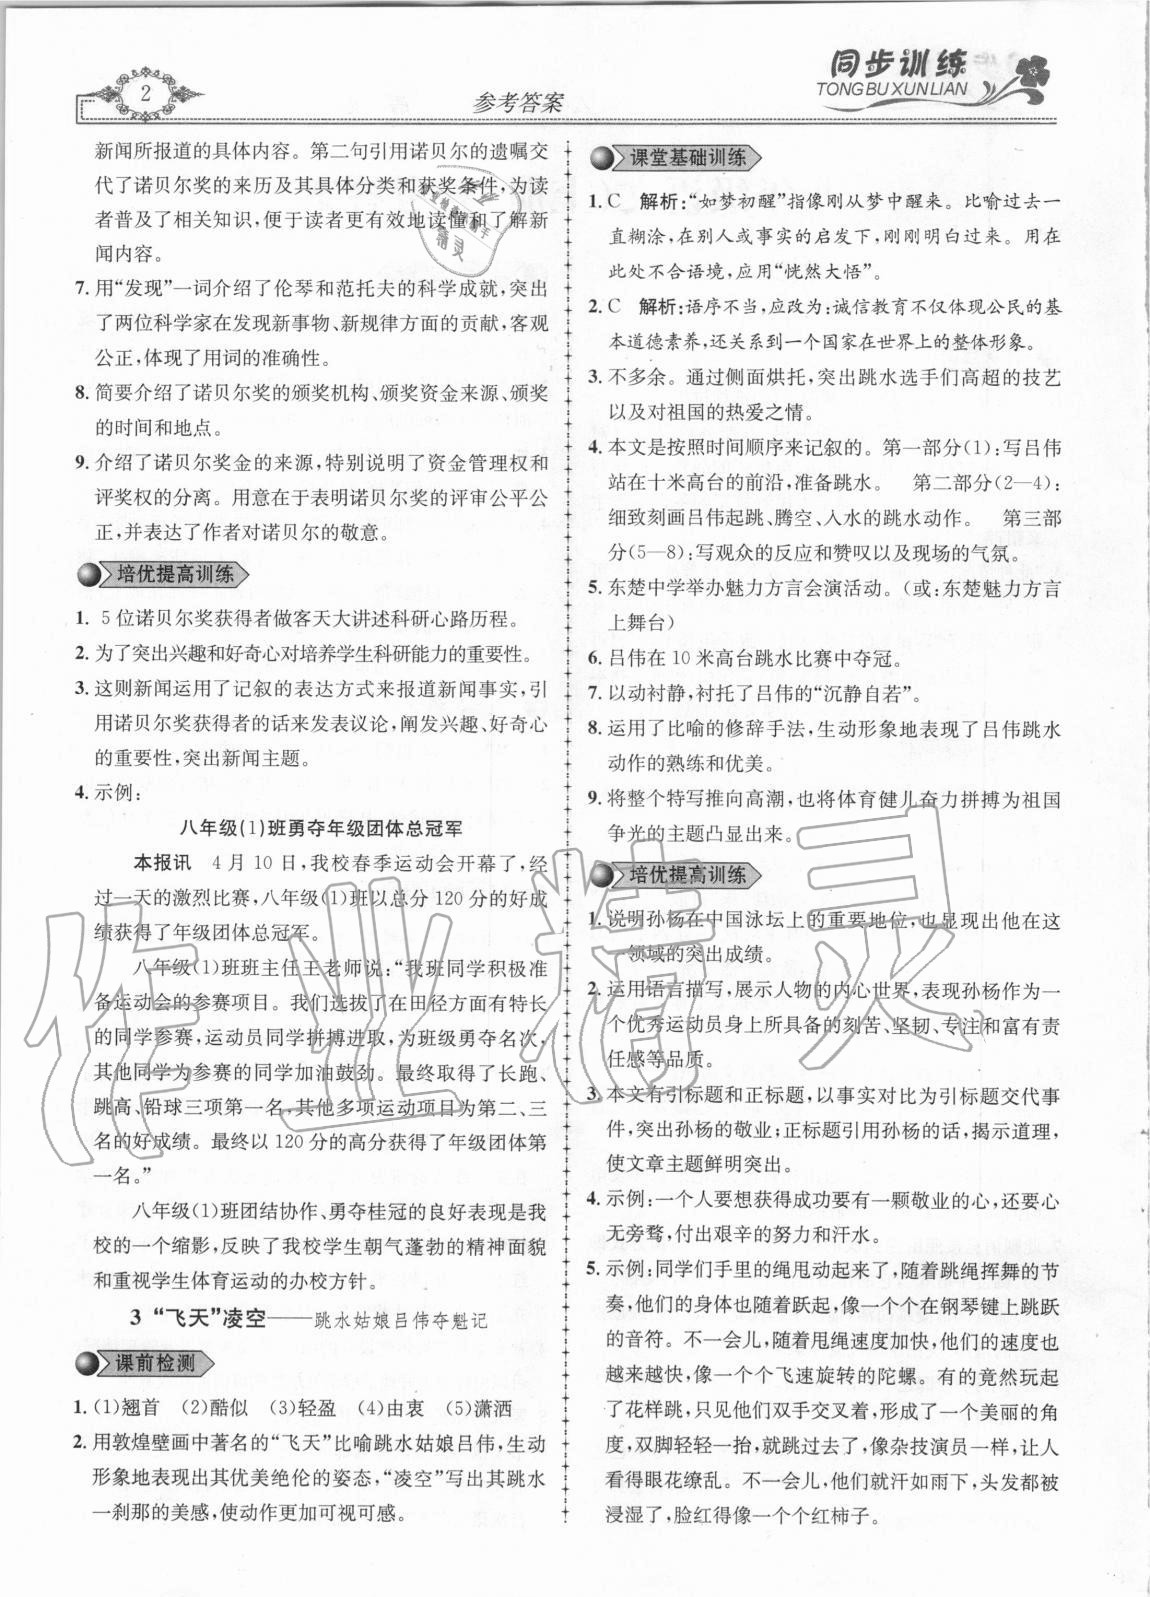 2
参考答案
同步训练
TONGBUXUNLIAN
新闻所报道的具体内容。第二句引用诺贝尔的遗嘱交
代了诺贝尔奖的来历及其具体分类和获奖条件，为读
者普及了相关知识，便于读者更有效地读懂和了解新
闻内容。
7. 用“发现”一词介绍了伦琴和范托夫的科学成就，突出
了两位科学家在发现新事物、新规律方面的贡献，客观
公正，体现了用词的准确性。
8. 简要介绍了诺贝尔奖的颁奖机构、颁奖资金来源、颁奖
的时间和地点。
9. 介绍了诺贝尔奖金的来源，特别说明了资金管理权和
评奖权的分离。用意在于表明诺贝尔奖的评审公平公
正，并表达了作者对诺贝尔的敬意。
培优提高训练
1. 5 位诺贝尔奖获得者做客天大讲述科研心路历程。
2. 为了突出兴趣和好奇心对培养学生科研能力的重要性。
3. 这则新闻运用了记叙的表达方式来报道新闻事实，引
用诺贝尔奖获得者的话来发表议论，阐发兴趣、好奇心
的重要性，突出新闻主题。
4. 示例：
八年级(1)班勇夺年级团体总冠军
本报讯　4 月 10 日，我校春季运动会开幕了，经
过一天的激烈比赛，八年级(1)班以总分 120 分的好成
绩获得了年级团体总冠军。
八年级(1)班班主任王老师说：“我班同学积极准
备运动会的参赛项目。我们选拔了在田径方面有特长
的同学参赛，运动员同学拼搏进取，为班级勇夺名次，
其他同学为参赛的同学加油鼓劲。最终取得了长跑、
跳高、铅球三项第一名，其他多项运动项目为第二、三
名的好成绩。最终以 120 分的高分获得了年级团体第
一名。”
八年级(1)班团结协作、勇夺桂冠的良好表现是我
校的一个缩影，反映了我校学生朝气蓬勃的精神面貌
和重视学生体育运动的办校方针。
3 “飞天”凌空——跳水姑娘吕伟夺魁记
课前检测
1. (1)翘首　(2)酷似　(3)轻盈　(4)由衷　(5)潇洒
2. 用敦煌壁画中著名的“飞天”比喻跳水姑娘吕伟，生动
形象地表现出其优美绝伦的姿态，“凌空”写出其跳水
一刹那的美感，使动作更加可视可感。
课堂基础训练
1. C　解析：“如梦初醒”指像刚从梦中醒来。比喻过去一
直糊涂，在别人或事实的启发下，刚刚明白过来。用在
此处不合语境，应用“恍然大悟”。
2. C　解析：语序不当，应改为：诚信教育不仅体现公民的基
本道德素养，还关系到一个国家在世界上的整体形象。
3. 不多余。通过侧面烘托，突出跳水选手们高超的技艺
以及对祖国的热爱之情。
4. 本文是按照时间顺序来记叙的。第一部分(1)：写吕伟
站在十米高台的前沿，准备跳水。　第二部分(2—4)：
细致刻画吕伟起跳、腾空、入水的跳水动作。　第三部
分(5—8)：写观众的反应和赞叹以及现场的气氛。
5. 东楚中学举办魅力方言会演活动。（或：东楚魅力方言
上舞台）
6. 吕伟在 10 米高台跳水比赛中夺冠。
7. 以动衬静，衬托了吕伟的“沉静自若”。
8. 运用了比喻的修辞手法，生动形象地表现了吕伟跳水
动作的熟练和优美。
9. 将整个特写推向高潮，也将体育健儿奋力拼搏为祖国
争光的主题凸显出来。
培优提高训练
1. 说明孙杨在中国泳坛上的重要地位，也显现出他在这
一领域的突出成绩。
2. 运用语言描写，展示人物的内心世界，表现孙杨作为一
个优秀运动员身上所具备的刻苦、坚韧、专注和富有责
任感等品质。
3. 本文有引标题和正标题，以事实对比为引标题交代事
件，突出孙杨的敬业；正标题引用孙杨的话，揭示道理，
使文章主题鲜明突出。
4. 示例：一个人要想获得成功要有一颗敬业的心，还要心
无旁骛，付出艰辛的努力和汗水。
5. 示例：同学们手里的绳甩动起来了，随着跳绳挥舞的节
奏，他们的身体也随着跃起，像一个个在钢琴键上跳跃
的音符。不一会儿，随着甩绳速度加快，他们的速度也
越来越快，像一个个飞速旋转的陀螺。有的竟然玩起
了花样跳，只见他们双手交叉着，形成了一个美丽的角
度，双脚轻轻一抬，就跳过去了，像杂技演员一样，让人
看得眼花缭乱。不一会儿，他们就汗如雨下，头发都被
浸湿了，脸红得像一个个红柿子。
作业精灵